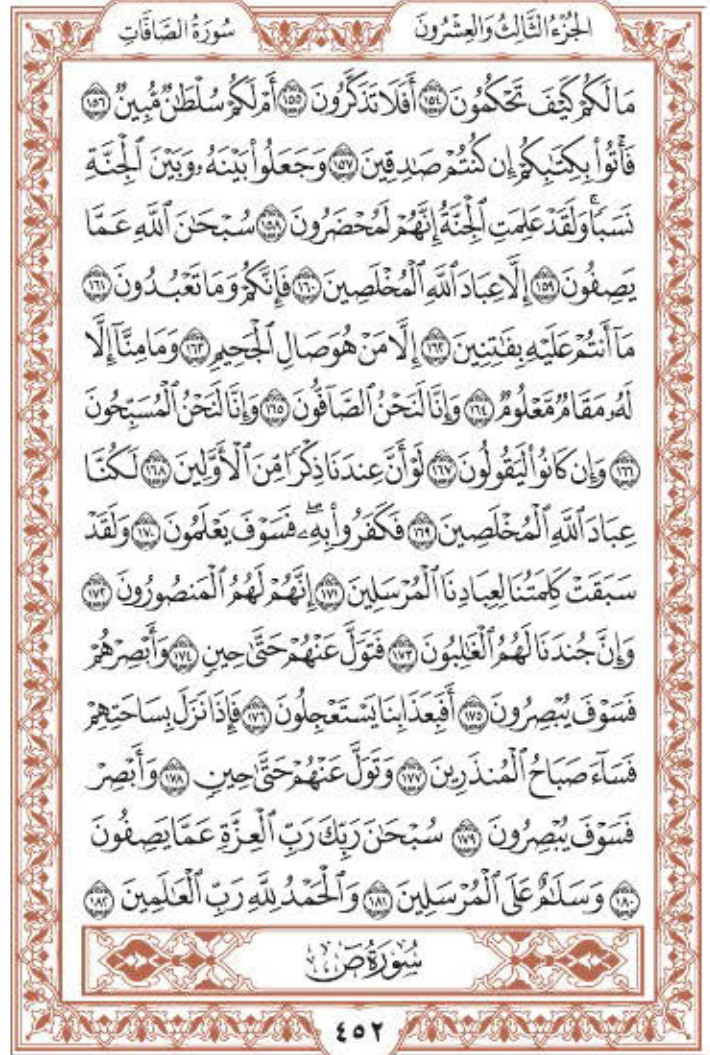 الجُزْءُ الثَّالِثُ وَالعِشْرُونَ سُورَةُ الصَّافَّاتِ
مَا لَكُمْ كَيْفَ تَحْكُمُونَ ١٥٤ أَفَلَا تَذَكَّرُونَ ١٥٥ أَمْ لَكُمْ سُلْطَٰنٌ مُّبِينٌ ١٥٦
فَأْتُوا۟ بِكِتَٰبِكُمْ إِن كُنتُمْ صَٰدِقِينَ ١٥٧ وَجَعَلُوا۟ بَيْنَهُۥ وَبَيْنَ ٱلْجِنَّةِ
نَسَبًا ۚ وَلَقَدْ عَلِمَتِ ٱلْجِنَّةُ إِنَّهُمْ لَمُحْضَرُونَ ١٥٨ سُبْحَٰنَ ٱللَّهِ عَمَّا
يَصِفُونَ ١٥٩ إِلَّا عِبَادَ ٱللَّهِ ٱلْمُخْلَصِينَ ١٦٠ فَإِنَّكُمْ وَمَا تَعْبُدُونَ ١٦١
مَآ أَنتُمْ عَلَيْهِ بِفَٰتِنِينَ ١٦٢ إِلَّا مَنْ هُوَ صَالِ ٱلْجَحِيمِ ١٦٣ وَمَا مِنَّآ إِلَّا
لَهُۥ مَقَامٌ مَّعْلُومٌ ١٦٤ وَإِنَّا لَنَحْنُ ٱلصَّآفُّونَ ١٦٥ وَإِنَّا لَنَحْنُ ٱلْمُسَبِّحُونَ
١٦٦ وَإِن كَانُوا۟ لَيَقُولُونَ ١٦٧ لَوْ أَنَّ عِندَنَا ذِكْرًا مِّنَ ٱلْأَوَّلِينَ ١٦٨ لَكُنَّا
عِبَادَ ٱللَّهِ ٱلْمُخْلَصِينَ ١٦٩ فَكَفَرُوا۟ بِهِۦ ۖ فَسَوْفَ يَعْلَمُونَ ١٧٠ وَلَقَدْ
سَبَقَتْ كَلِمَتُنَا لِعِبَادِنَا ٱلْمُرْسَلِينَ ١٧١ إِنَّهُمْ لَهُمُ ٱلْمَنصُورُونَ ١٧٢
وَإِنَّ جُندَنَا لَهُمُ ٱلْغَٰلِبُونَ ١٧٣ فَتَوَلَّ عَنْهُمْ حَتَّىٰ حِينٍ ١٧٤ وَأَبْصِرْهُمْ
فَسَوْفَ يُبْصِرُونَ ١٧٥ أَفَبِعَذَابِنَا يَسْتَعْجِلُونَ ١٧٦ فَإِذَا نَزَلَ بِسَاحَتِهِمْ
فَسَآءَ صَبَاحُ ٱلْمُنذَرِينَ ١٧٧ وَتَوَلَّ عَنْهُمْ حَتَّىٰ حِينٍ ١٧٨ وَأَبْصِرْ
فَسَوْفَ يُبْصِرُونَ ١٧٩ سُبْحَٰنَ رَبِّكَ رَبِّ ٱلْعِزَّةِ عَمَّا يَصِفُونَ
١٨٠ وَسَلَٰمٌ عَلَى ٱلْمُرْسَلِينَ ١٨١ وَٱلْحَمْدُ لِلَّهِ رَبِّ ٱلْعَٰلَمِينَ ١٨٢
سُورَةُ صٓ
٤٥٢